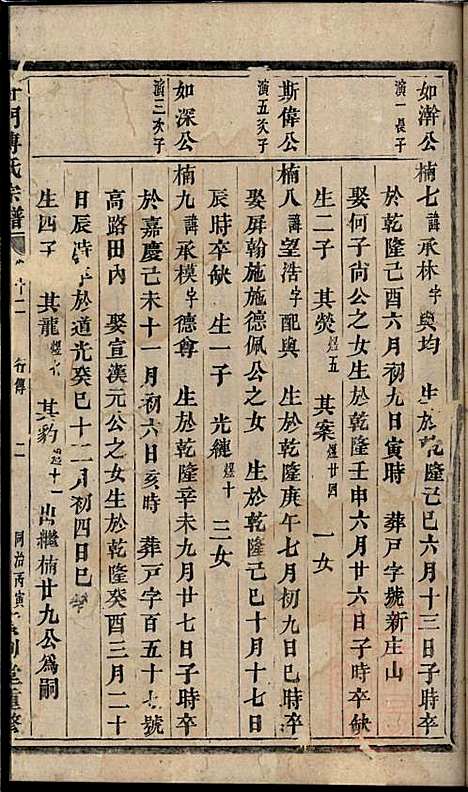 如瀚公
演一長子
楠七諱承林字與均 生於乾隆己巳六月十三日子時卒
於乾隆己酉六月初九日寅時 葬戸字號新庄山
娶何子尙公之女生於乾隆壬申六月廿六日子時卒缺
生二子 其熒煜五 其案煜廿四 一女
斯偉公
演五次子
楠八諱望浩字配與 生於乾隆庚午七月初九日巳時卒
娶屏翰施施德佩公之女 生於乾隆己巳十月十七日
辰時卒缺 生一子 光縺煜十 三女
如深公
演三次子
楠九諱承模字德尊 生於乾隆辛未九月廿七日子時卒
於嘉慶己未十一月初六日亥時 葬戸字百五十七號
高路田內 娶宣漢元公之女生於乾隆癸酉三月二十
日辰時卒於道光癸巳十二月初四日巳
生四子 其龍煜 其豹 十一出繼楠廿九公爲嗣
傅氏宗譜 行傳 二 同治丙寅 堂重修